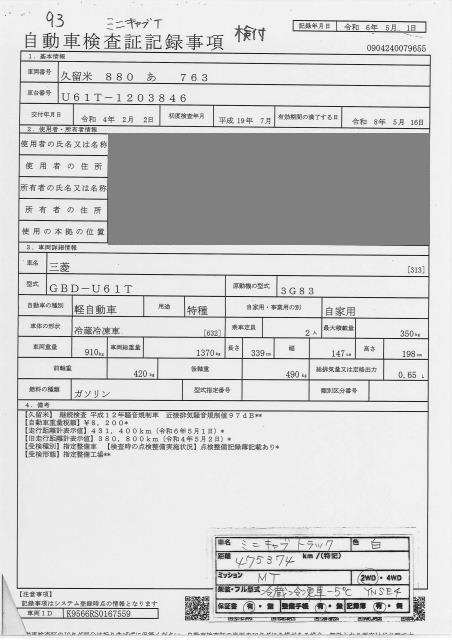 93 ミニキャブT 検付
記録年月日 令和 6年 5月 1日
自動車検査証記録事項
0904240079655
1. 基本情報
車両番号 久留米 880 あ 763
車台番号 U61T-1203846
交付年月日 令和 4年 2月 2日 初度検査年月 平成19年 7月 有効期間の満了する日 令和 8年 5月 16日
2. 使用者・所有者情報
使用者の氏名又は名称
使用者の住所
所有者の氏名又は名称
所有者の住所
使用の本拠の位置
3. 車両詳細情報
車名 三菱 [313]
型式 GBD-U61T 原動機の型式 3G83
自動車の種別 軽自動車 用途 特種 自家用・事業用の別 自家用
車体の形状 冷蔵冷凍車 [632] 乗車定員 2人 最大積載量 350kg
車両重量 910kg 車両総重量 1370kg 長さ 339cm 幅 147cm 高さ 198cm
前軸重 420kg 後軸重 490kg 総排気量又は定格出力 0.65L
燃料の種類 ガソリン 型式指定番号 類別区分番号
4. 備考
【久留米】 継続検査 平成12年騒音規制車 近接排気騒音規制値97dB**
【自動車重量税額】¥8,200*
【走行距離計表示値】431,400km（令和6年5月1日）*
【旧走行距離計表示値】380,800km（令和4年5月2日）*
【受検種別】指定整備車 【検査時の点検整備実施状況】点検整備記録簿記載あり*
【受検形態】指定整備工場**
車名 ミニキャブトラック 色 白
距離 475374 km/(特記)
ミッション MT 2WD・4WD
架装・フル型式 冷蔵冷凍車-5℃ YNSE4
保証書 有・無 整備手帳 有・無 記録簿 有・無
【注意事項】
記録事項はシステム登録時点の情報となります
車両ID K9566RS0167559